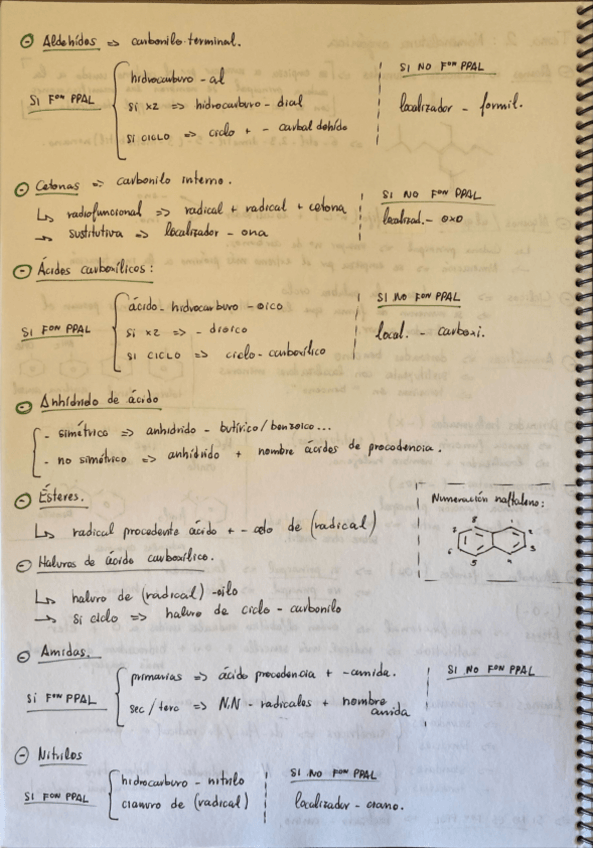 Aldehídos => carbonilo terminal.
SI Fᵒⁿ PPAL
hidrocarburo - al
si x2 => hidrocarburo - dial
si CICLO => ciclo + - carbaldehído
SI NO Fᵒⁿ PPAL
localizador - formil.
Cetonas => carbonilo interno.
↳ radiofuncional => radical + radical + cetona
→ sustitutiva => localizador - ona
SI NO Fᵒⁿ PPAL
localizad. - oxo
Ácidos carboxílicos:
SI Fᵒⁿ PPAL
ácido - hidrocarburo - oico
si x2 => - dioico
si CICLO => ciclo - carboxílico
SI NO Fᵒⁿ PPAL
local. - carboxi.
Anhídrido de ácido
- simétrico => anhídrido - butírico/benzoico...
- no simétrico => anhídrido + nombre ácidos de procedencia.
Ésteres.
↳ radical procedente ácido + - ato de (radical)
Numeración naftaleno:
8 1
7 2
6 3
5 4
Haluros de ácido carboxílico.
↳ haluro de (radical) - oilo
→ si ciclo => haluro de ciclo - carbonilo
Amidas.
SI Fᵒⁿ PPAL
primarias => ácido procedencia + - amida.
sec/terc => N,N - radicales + nombre amida
SI NO Fᵒⁿ PPAL
Nitrilos
SI Fᵒⁿ PPAL
hidrocarburo - nitrilo
cianuro de (radical)
SI NO Fᵒⁿ PPAL
localizador - ciano.